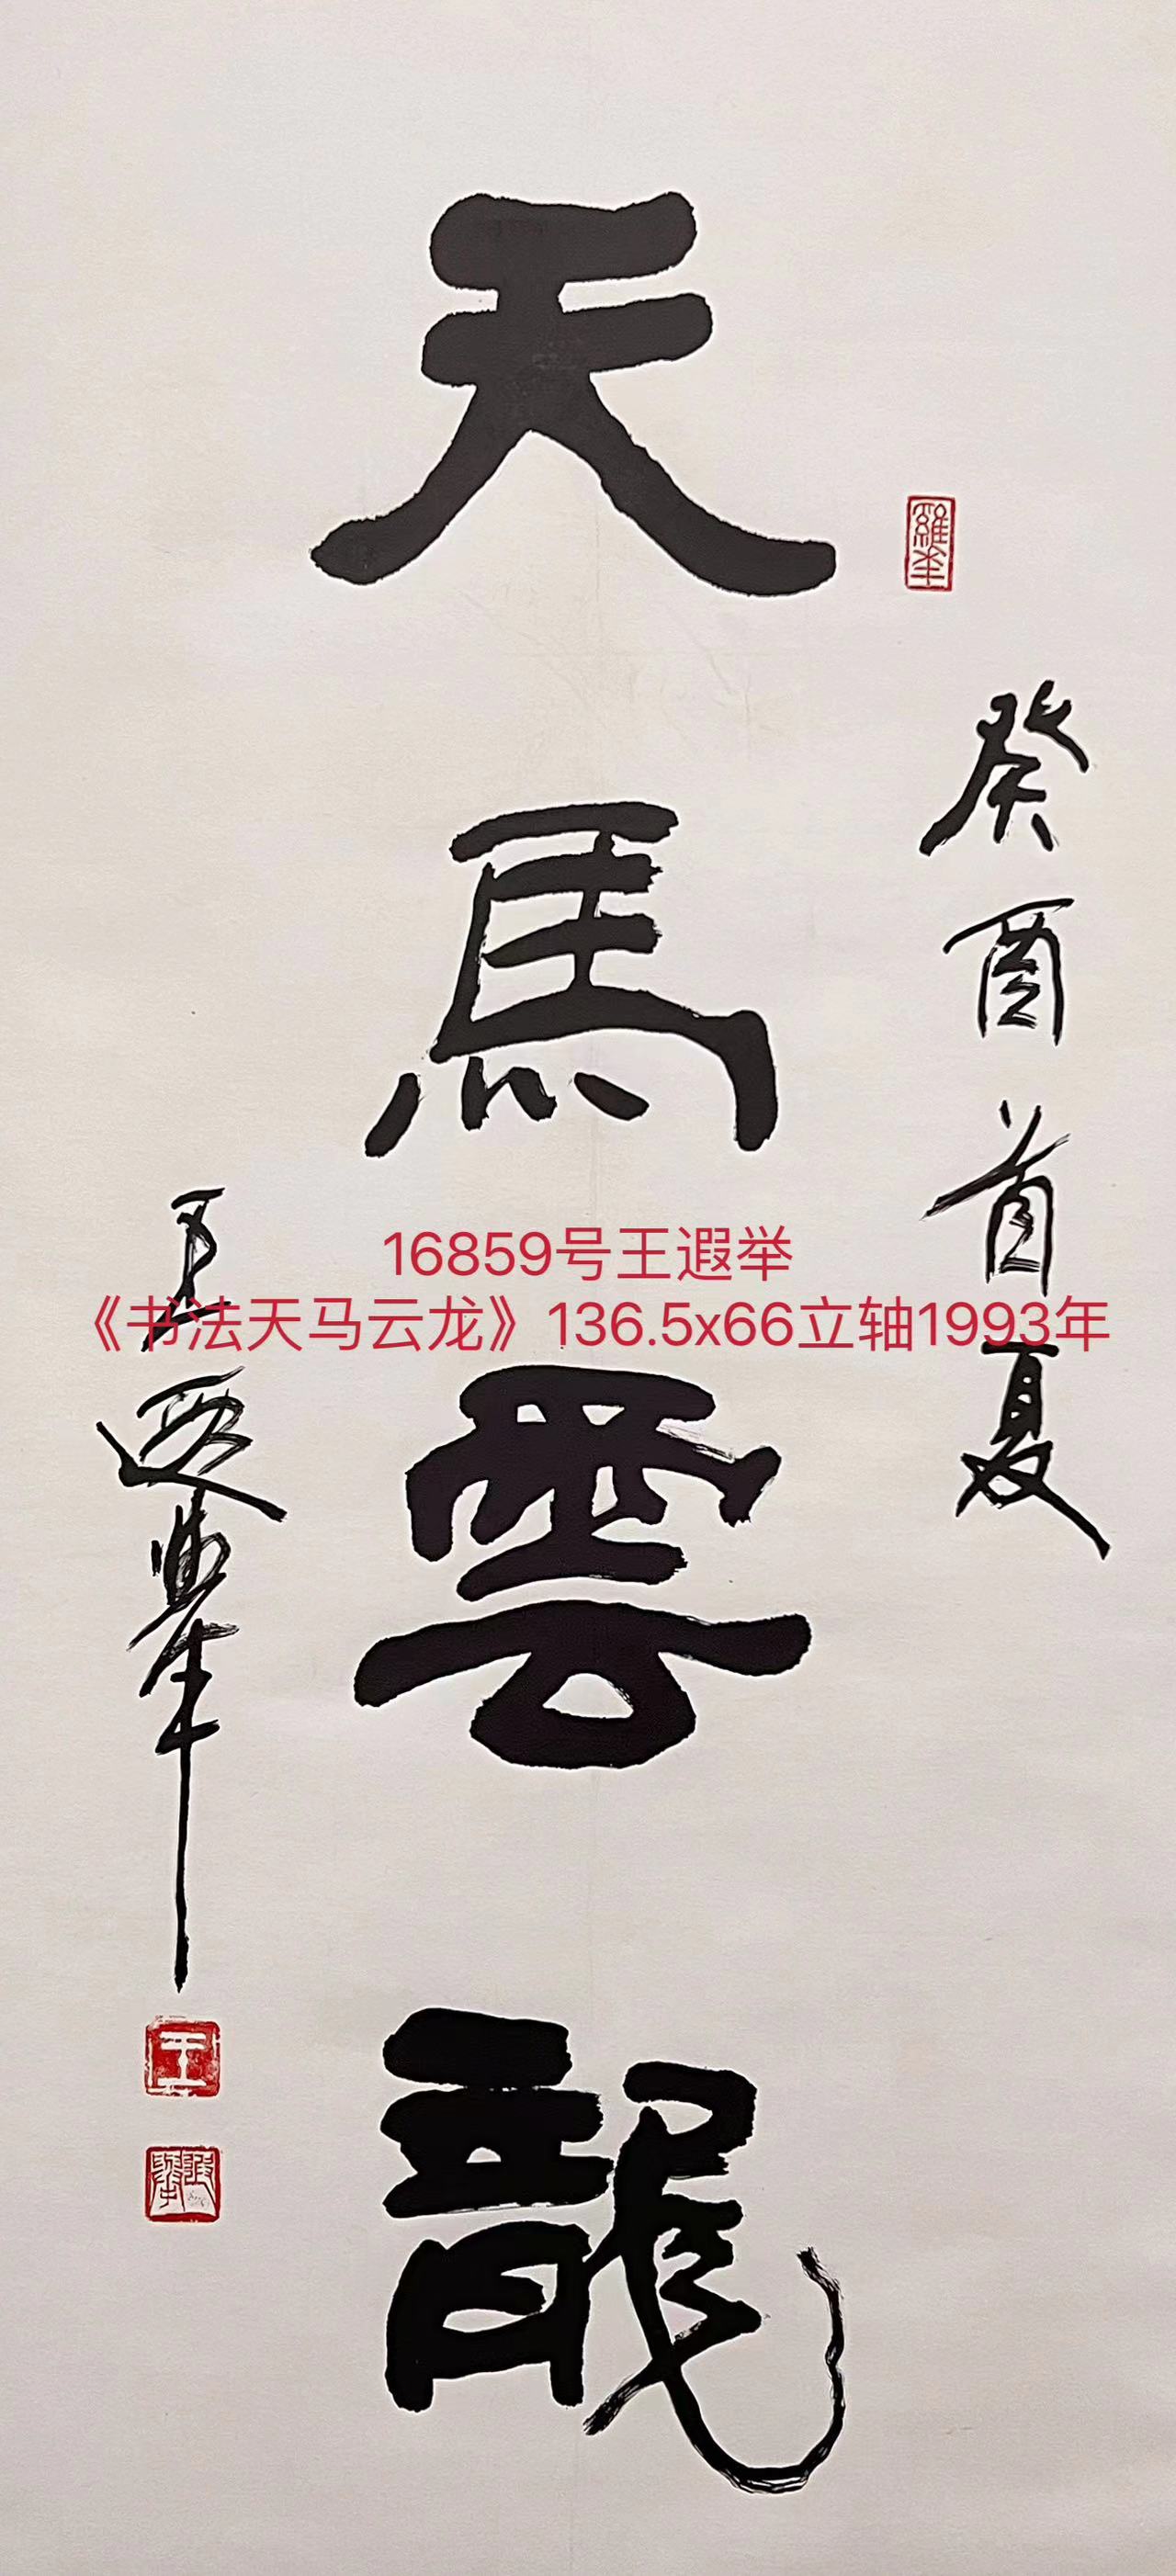 天馬雲龍
癸酉首夏
王遐舉
16859号王遐举
《书法天马云龙》136.5x66立轴1993年
王
遐舉